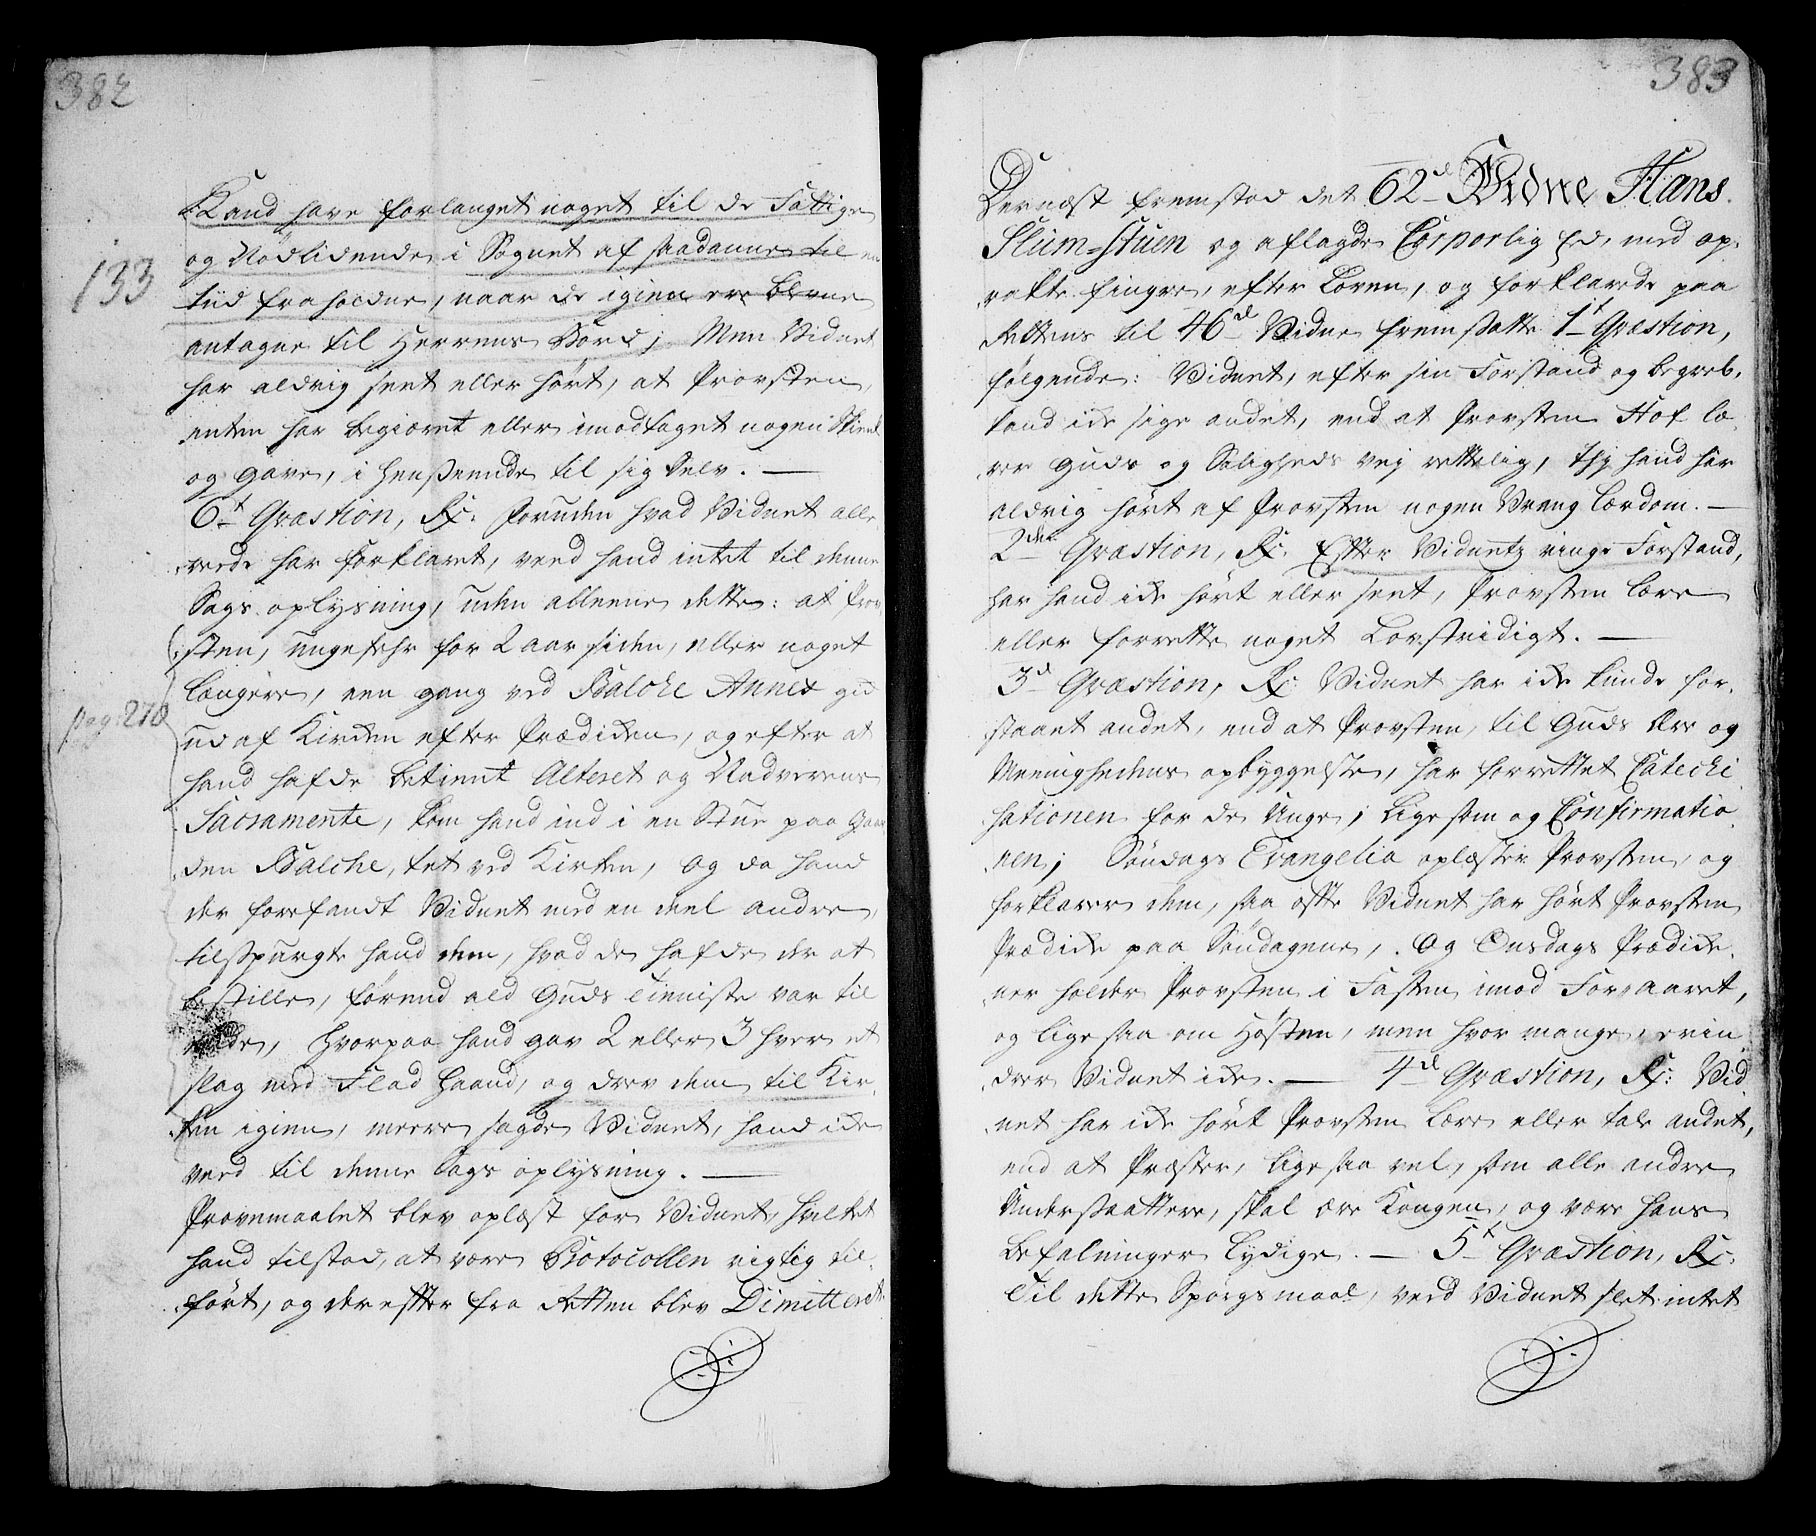 382
133
Kand have forlanget noget til de Fattige
og Nødlidende i Sognet af saadanne til en
tiid fraholdne, naar de igien ere blevne
antagne til Herrens Bord; Men Vidnet
har aldrig seet eller hørt, at Provsten,
enten har begiæret eller imodtaget nogen Skienk
og gave, i henseende til sig selv. —
6t Qvæstion, Rx: Foruden hvad Vidnet alle-
rede har forklaret, veed hand intet til denne
Sags oplysning, uden alleene dette: at Prov
sten, ungefehr for 2 aar siden, eller noget
længere, een gang ved Balche Annex gik
pag: 270
ud af Kirken efter Prædiken, og efter at
hand hafde betient Alteret og Nadverens
Sacramente, kom hand ind i en Stue paa Gaar
den Balche, tet ved Kirken, og da hand
der forefandt Vidnet med en deel andre,
tilspurgte hand dem, hvad de hafde der at
bestille, førend ald Guds Tieniste var til
ende, hvorpaa hand gav 2 eller 3 hver et
slag med Flad haand, og drev dem til Kir-
ken igien, meere sagde Vidnet, hand ide
veed til denne Sags oplysning. —
Provemaalet blev oplæst for Vidnet, hvilket
hand tilstod, at være Protocollen rigtig til-
ført, og derefter fra Retten blev Dimitteret.
383
Dernæst fremstod det 62d Vidne Hans
Slum-stuen og aflagde Corporlig Eed, med op-
rakte fingre, efter Loven, og forklarede paa
Rettens til 46d Vidne fremsatte 1t Qvæstion,
følgende: Vidnet, efter sin Forstand og begreb,
kand ide sige andet, end at Provsten Hof læ-
rer Guds og Saligheds vej rettelig, thj hand har
aldrig hørt af Provsten nogen Vrang Lærdom. —
2den Qvæstion, Rx: Efter Vidnetz ringe Forstand,
har hand ide hørt eller seet, Provsten lære
eller forrette noget Lovstridigt. —
3d Qvæstion, Rx: Vidnet har ide kunde for-
staaet andet, end at Provsten, til Guds Ære og
Meenighedens opbyggelse, har forrettet Catechi
sationen for de Unge; ligesom og Confirmatio
nen; Søndags Evangelia oplæster Provsten, og
forklarer dem, saa ofte Vidnet har hørt Provsten
Prædike paa Søndagene, . Og Onsdags Prædike-
ner holder Provsten i Fasten imod Foraaret,
og lige saa om Høsten, men hvor mange, erin
drer Vidnet ide. — 4d Qvæstion, Rx: Vid
net har ide hørt Provsten lære eller tale andet,
end at Præster, lige saa vel, som alle andre
Undersaattere, skal ære Kongen, og være hans
befalninger lydige. — 5t Qvæstion, Rx:
Til dette Spørgsmaal, veed Vidnet slet intet